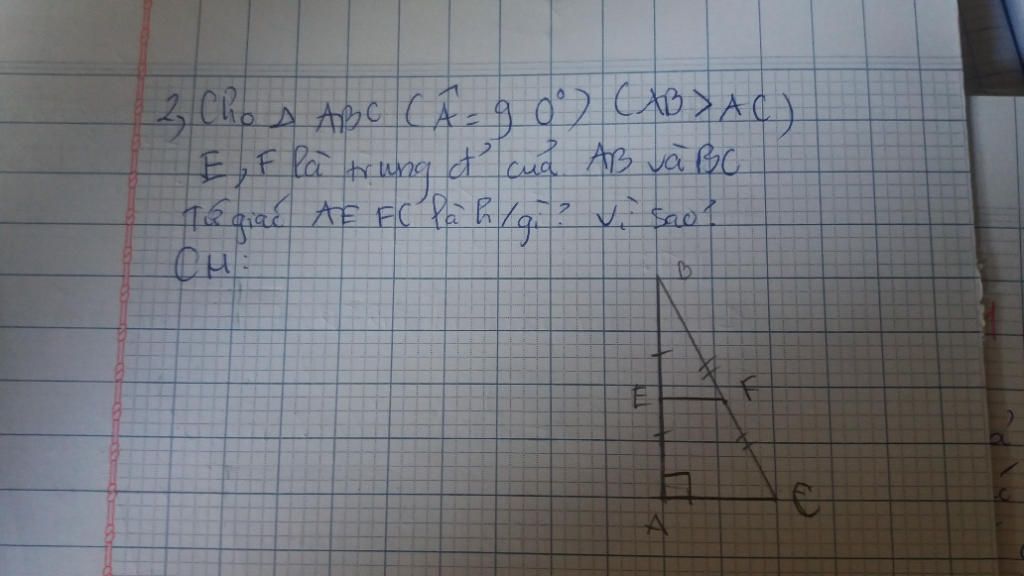 2, Cho Δ ABC (Â = 90°) (AB > AC)
E, F là trung đ' của AB và BC
Tứ giác AEFC là h/gì? Vì sao?
CM:
B
E
F
A
C